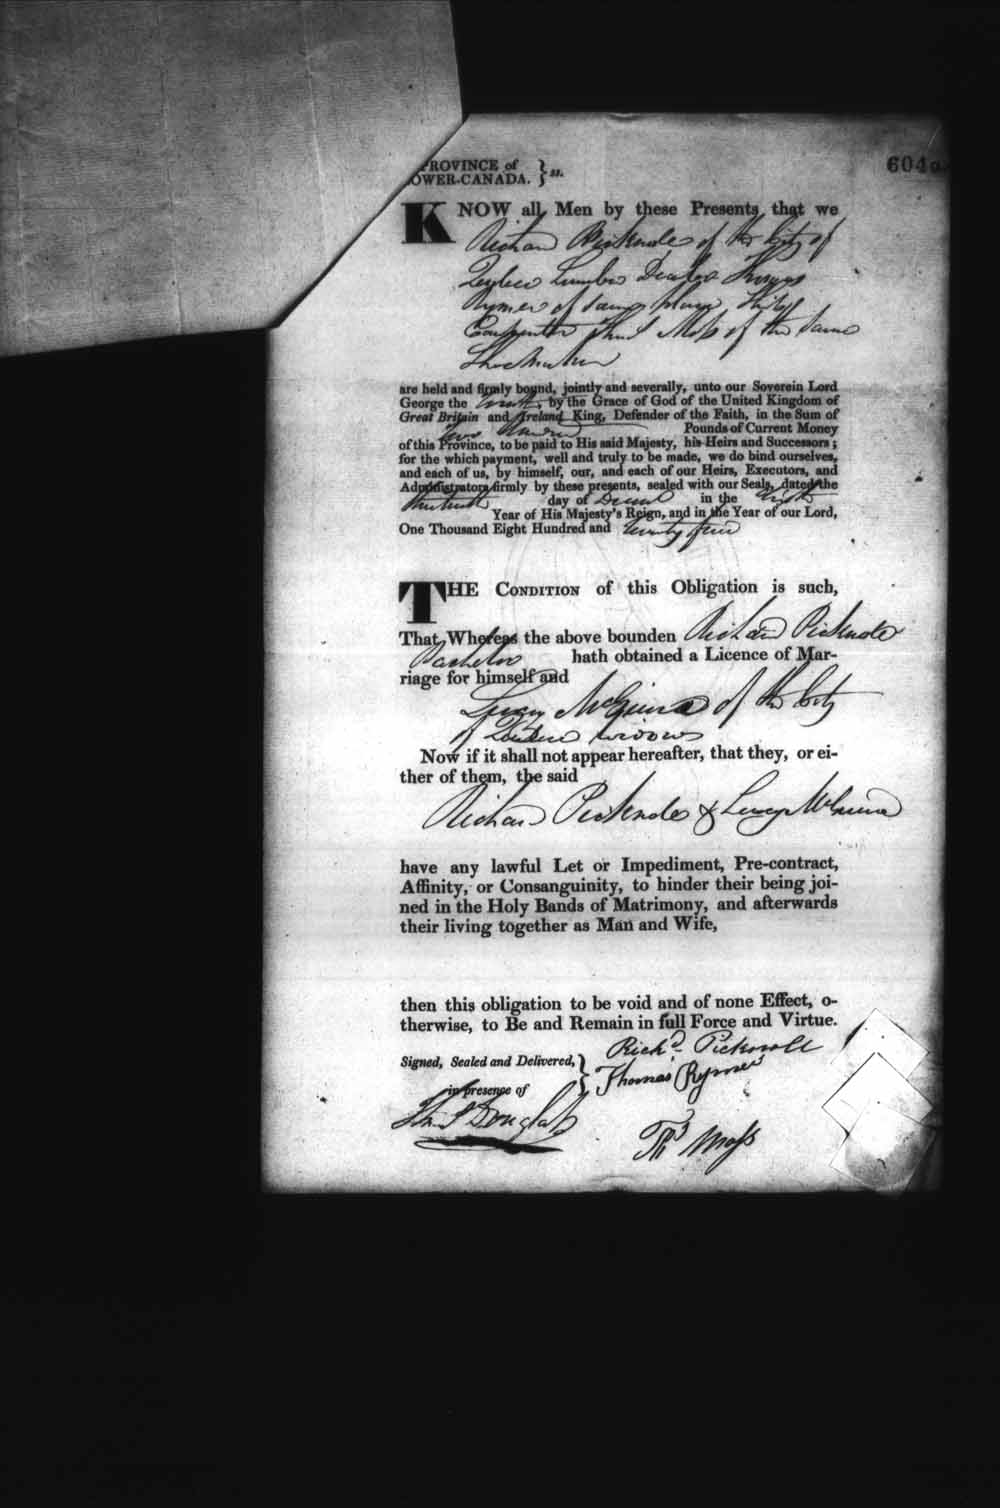 PROVINCE of
OWER-CANADA. } ss.
6040
KNOW all Men by these Presents that we
Richard Picknole of the City of
Quebec Lumber Dealer Thomas
Rymer of same place Ship
Carpenter Thos Moss of the same
Shoemaker
are held and firmly bound, jointly and severally, unto our Soverein Lord
George the Fourth, by the Grace of God of the United Kingdom of
Great Britain and Ireland King, Defender of the Faith, in the Sum of
Two Hundred Pounds of Current Money
of this Province, to be paid to His said Majesty, his Heirs and Successors;
for the which payment, well and truly to be made, we do bind ourselves,
and each of us, by himself, our, and each of our Heirs, Executors, and
Administrators firmly by these presents, sealed with our Seals, dated the
day of Decem in the
Year of His Majesty's Reign, and in the Year of our Lord,
One Thousand Eight Hundred and twenty
THE CONDITION of this Obligation is such,
That Whereas the above bounden Richard Picknole
Bachelor hath obtained a Licence of Mar-
riage for himself and
Lucy McGuire of the City
of Quebec widow
Now if it shall not appear hereafter, that they, or ei-
ther of them, the said
Richard Picknole & Lucy McGuire
have any lawful Let or Impediment, Pre-contract,
Affinity, or Consanguinity, to hinder their being joi-
ned in the Holy Bands of Matrimony, and afterwards
their living together as Man and Wife,
then this obligation to be void and of none Effect, o-
therwise, to Be and Remain in full Force and Virtue.
Signed, Sealed and Delivered,
in presence of
Richd Picknoll
Thomas Rymer
Douglas
Ths Moss